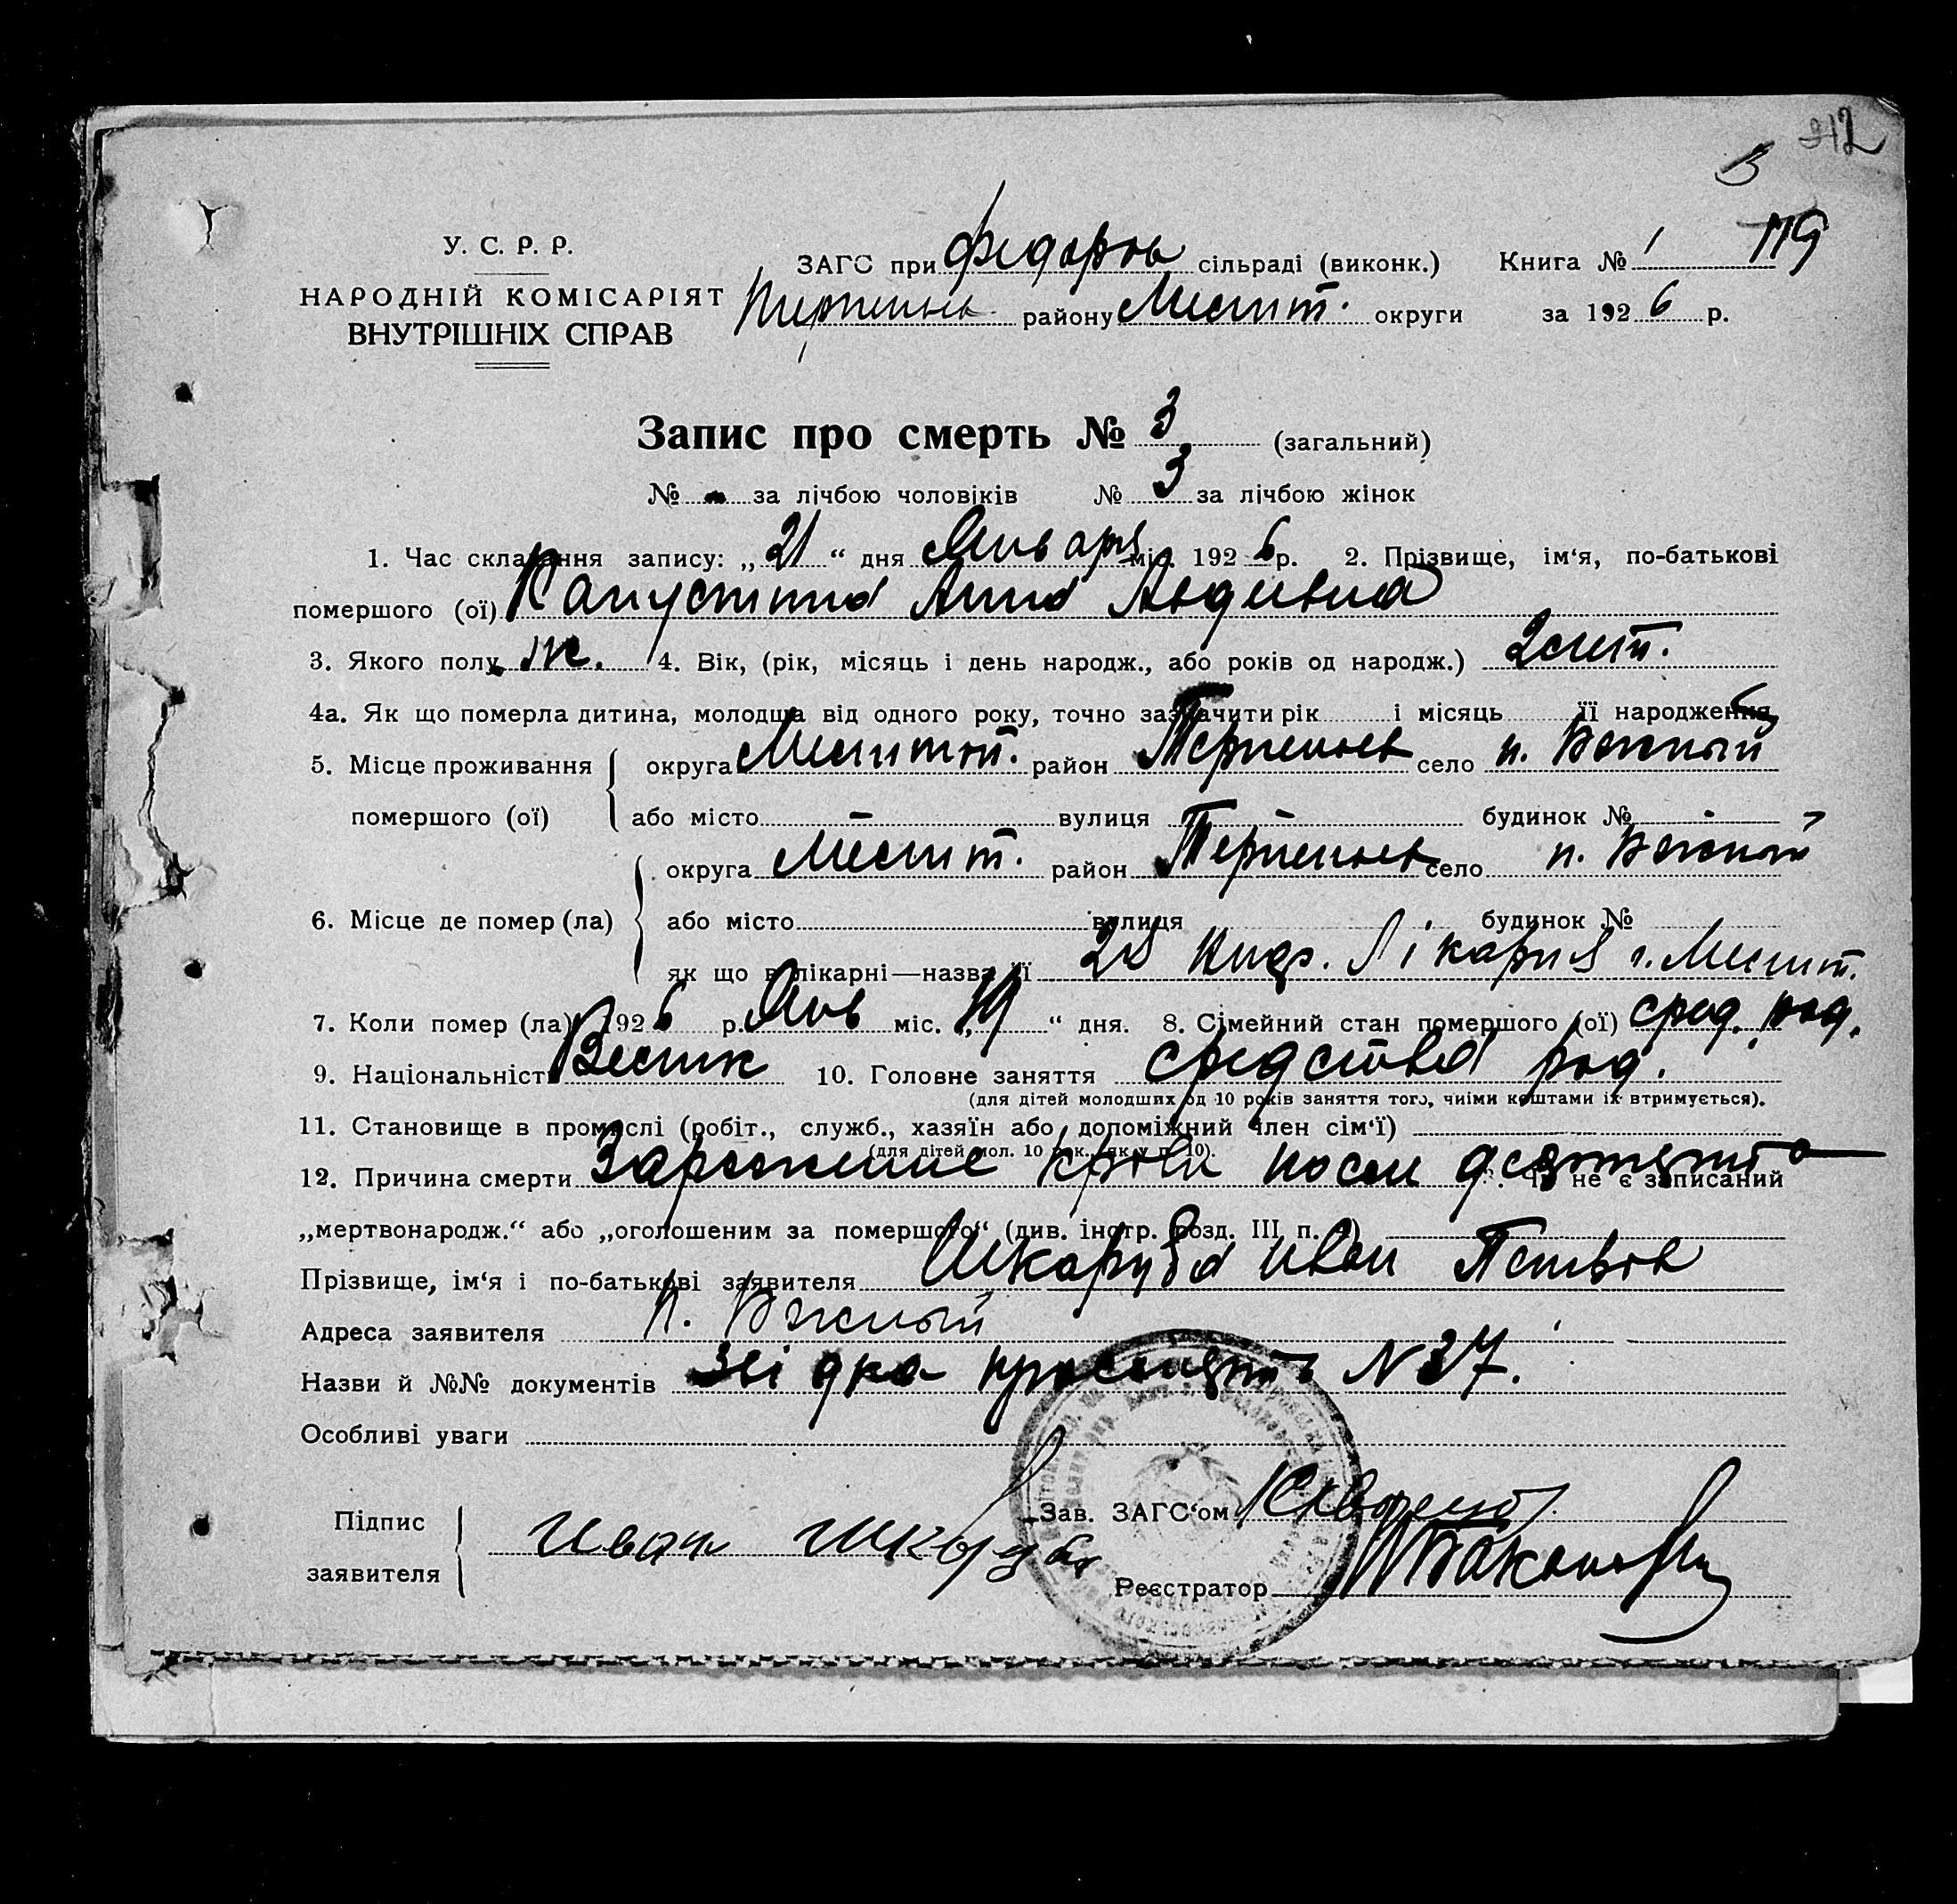 212
3
У. С. Р. Р.
НАРОДНІЙ КОМІСАРІЯТ
ВНУТРІШНІХ СПРАВ
ЗАГС при Федоров сільраді (виконк.) Книга № 1 119
району Мелит. округи за 1926 р.
Запис про смерть № 3 (загальний)
№ - за лічбою чоловіків № 3 за лічбою жінок
1. Час складання запису: „21“ дня Января міс. 1926 р. 2. Прізвище, ім‘я, по-батькові
помершого (ої) Капустина Анна Авдеевна
3. Якого полу ж. 4. Вік, (рік, місяць і день народж., або років од народж.) 2 лет.
4а. Як що померла дитина, молодша від одного року, точно зазначити рік і місяць її народження
5. Місце проживання округа Мелитоп. район Терпеньев село п. Важный
помершого (ої) або місто вулиця будинок №
округа Мелит. район Терпеньев село п. Важный
6. Місце де помер (ла) або місто вулиця будинок №
як що в лікарні—назва її 2я Лікарня г. Мелит.
7. Коли помер (ла) 1926 р. Янв міс. „19“ дня. 8. Сімейний стан помершого (ої) сред. род.
9. Національність 10. Головне заняття средства род.
(для дітей молодших од 10 років заняття того, чиїми коштами їх втримується).
11. Становище в промислі (робіт., служб., хазяїн або допоміжний член сім‘ї)
(для дітей мол. 10 рок., як у п. 10).
12. Причина смерти Заражение крови после 13. Чи не є записаний
„мертвонародж.“ або „оголошеним за помершого“ (див. інстр. розд. III п. )
Прізвище, ім‘я і по-батькові заявителя Шкаруба Иван Петров
Адреса заявителя п. Важный
Назви й №№ документів Звідка N 37.
Особливі уваги
Підпис
заявителя Иван Шкаруба
Зав. ЗАГС‘ом
Реєстратор